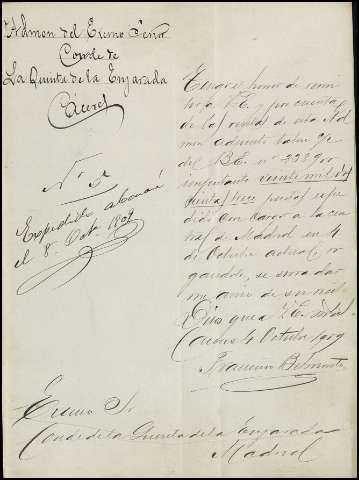 Admon del Excmo Señor
Conde de
La Quinta de la Enjarada
Cáceres
Nº 5
el 8 Octe 1909
Tengo el honor de remi
tir a V.E. y por cuenta
de las rentas de esta Ad
mon adjunto talon
del B.E. nº
importante veinte mil dos
pesetas expe
dido con cargo a la cen
tral de Madrid en 4
de Octubre actual,
gandole, se sirva dar
me aviso de su recibo
Dios gue a V.E. m. a.
Caceres 4 Octubre 1909
Francisco Belmonte
Excmo Sr
Conde de la Quinta de la Enjarada
Madrid